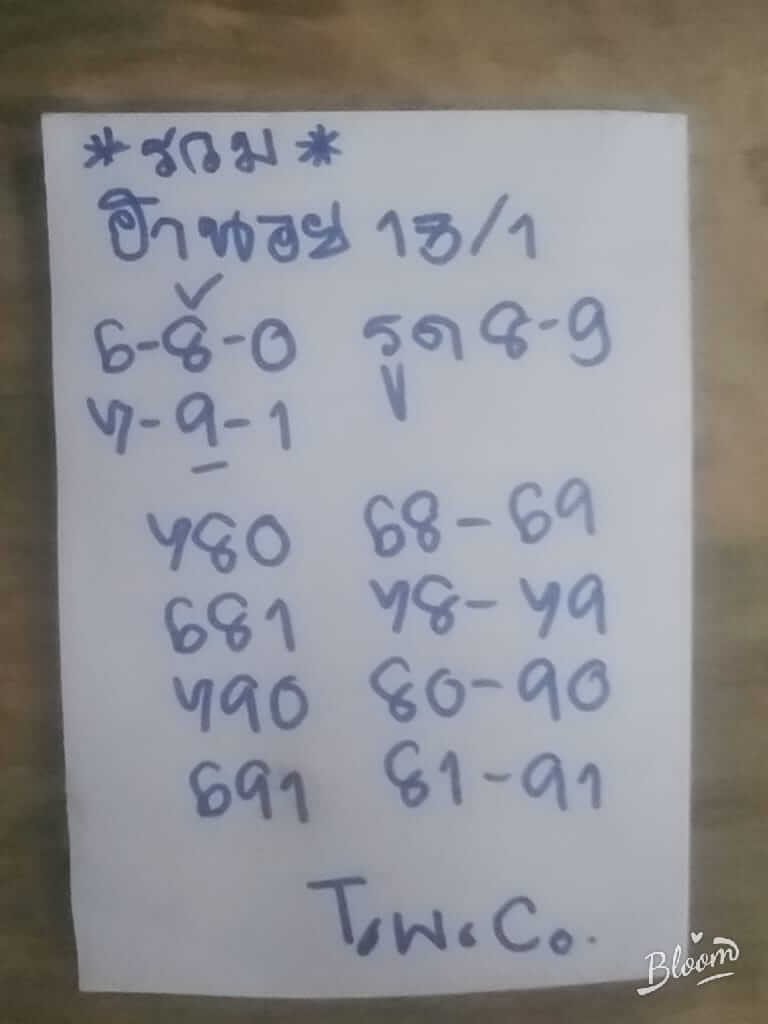 * รวม *
ฮานอย 13/1
6-8-0 รูด 8-9
7-9-1
780 68-69
681 78-79
790 80-90
691 81-91
T.W.Co.
Bloom